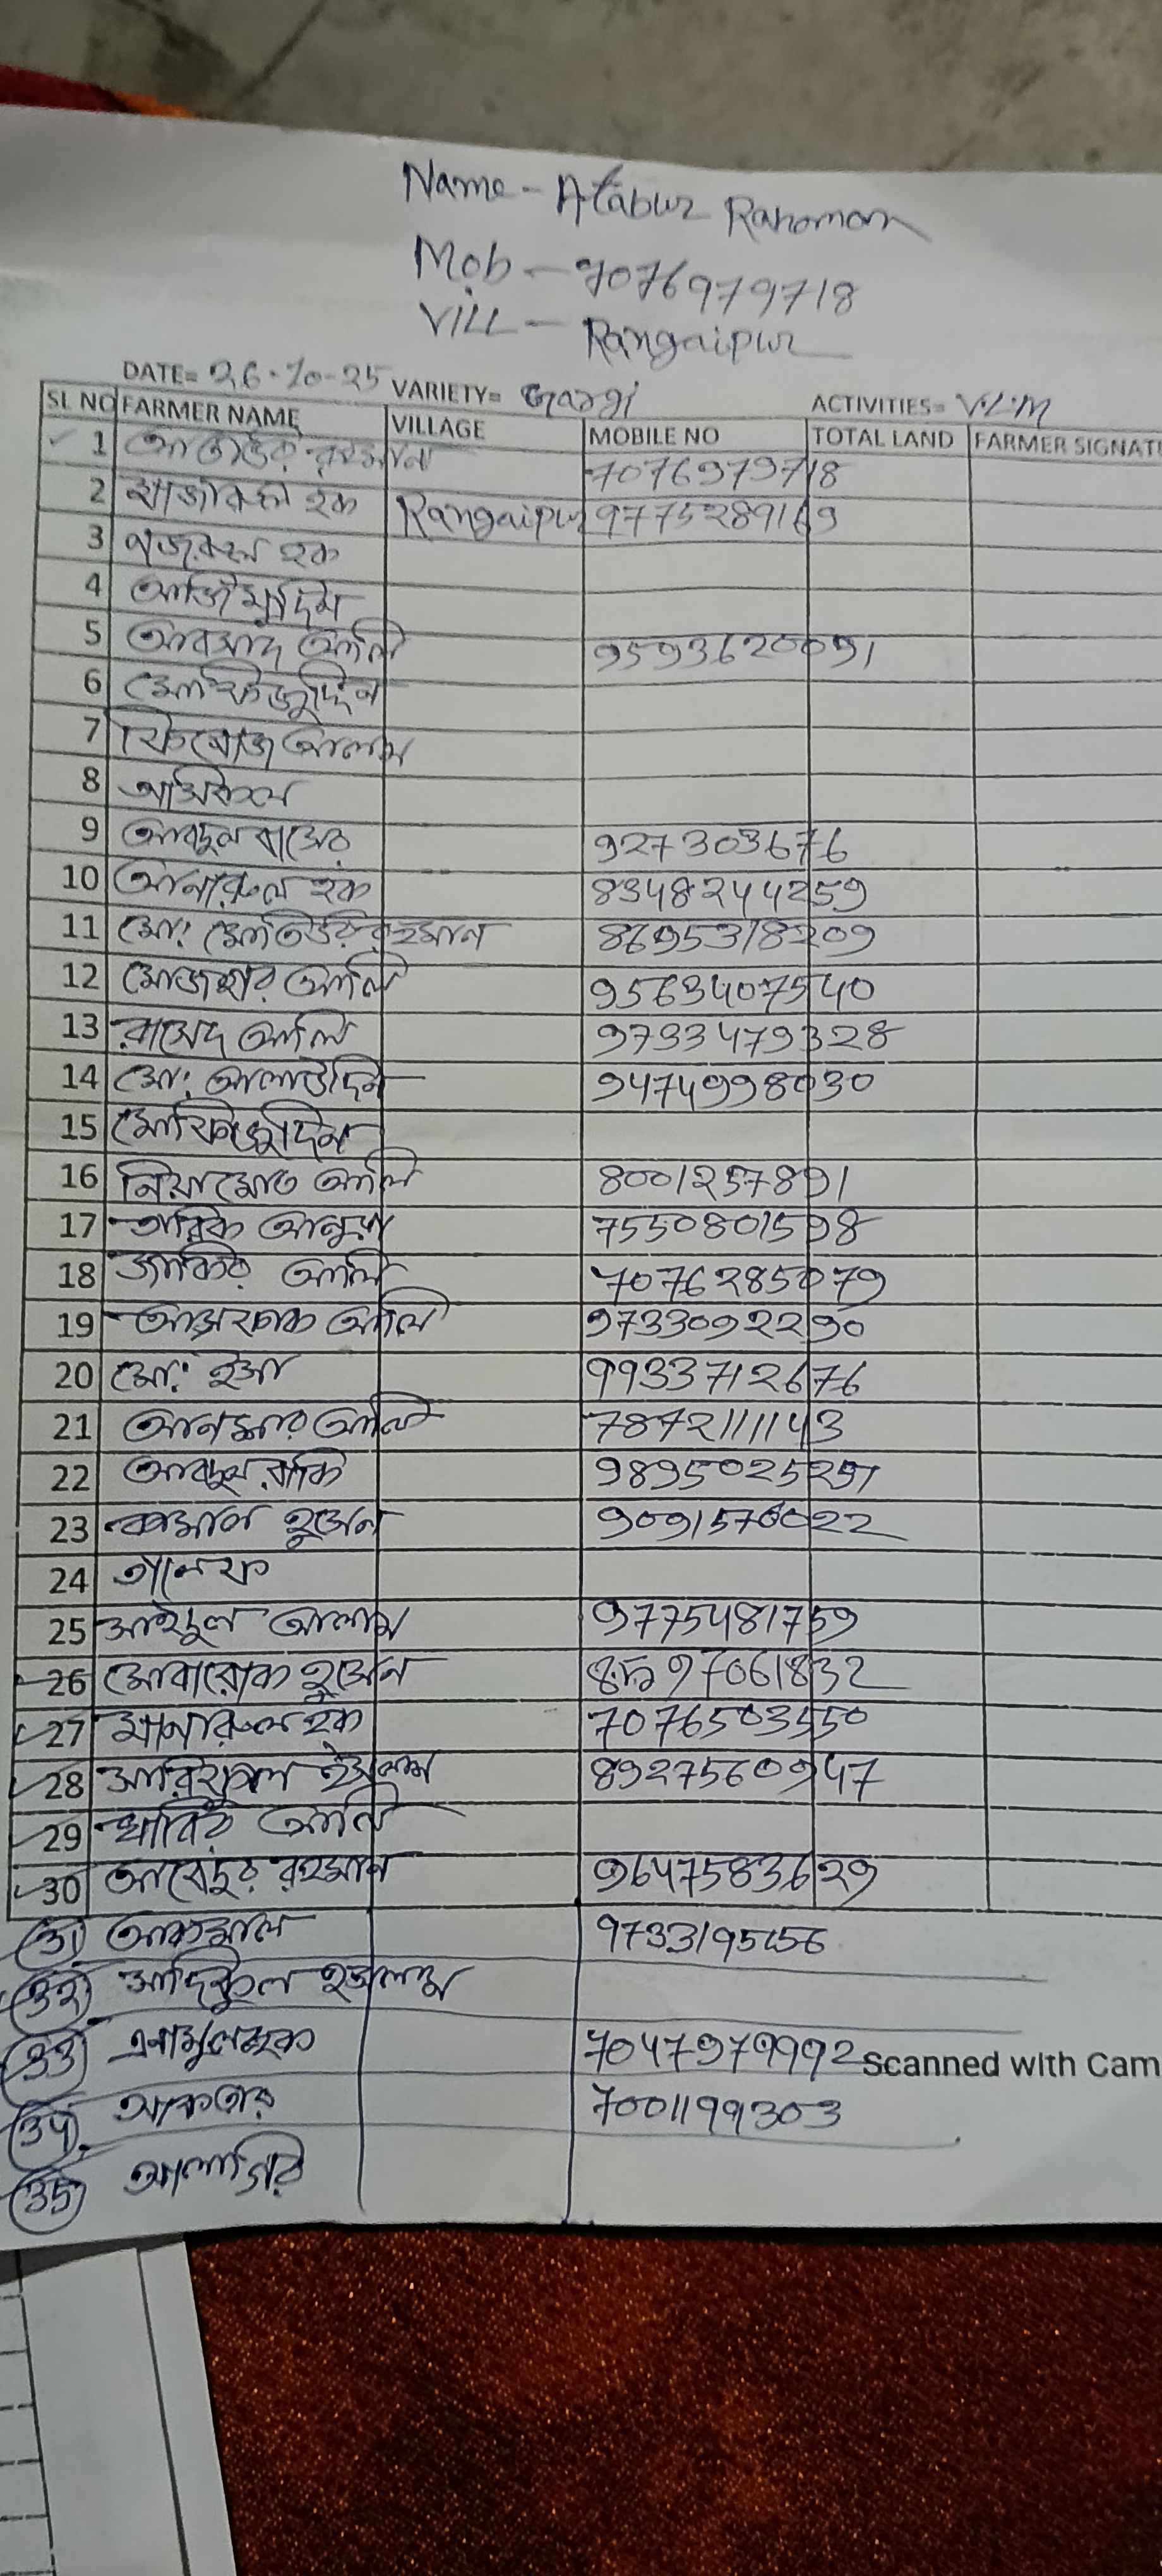 Name - Atabur Rahoman
Mob - 7076979718
VILL - Rangaipur
DATE= 26-10-25 VARIETY= Gargi ACTIVITIES= V.L.M
SL NO FARMER NAME VILLAGE MOBILE NO TOTAL LAND FARMER SIGNAT
1 আতাউর রহমান 7076979718
2 হক Rangaipur 9775289169
3 নজরুল হক
4 আজিমুদ্দিন
5 আরসাদ আলি 9593620091
6 মোফিজুদ্দিন
7 ফিরোজ আলাম
8
9 আবদুল বাসের 927303676
10 আনারুল হক 8348244259
11 মো: মোতিউর রহমান 8695318209
12 মোজাহার আলি 9563407540
13 রাসেদ আলি 9733479328
14 মো: আলাউদ্দিন 9474998030
15 মোফিজুদ্দিন
16 নিয়ামোত আলি 8001257891
17 তারিক 7550801598
18 জাকির আলি 7076285079
19 আলি 9733092290
20 মো: ইসা 9933712676
21 আনসার আলি 7872111143
22 আবদুল বাকি
23 কামাল হুসেন
24
25 সাইদুল আলাম 9775481759
26 মোবারোক হুসেন 97061832
27 মানারুল হক 7076503550
28 আরিফুল ইসলাম 8927560947
29 সাবির আলি
30 আবেদুর রহমান 9647583629
31 আকমাল
32 সাদিকুল ইসলাম
33 এনামুল হক 7047979992
34 আকতার 7001199303
35
Scanned with Cam